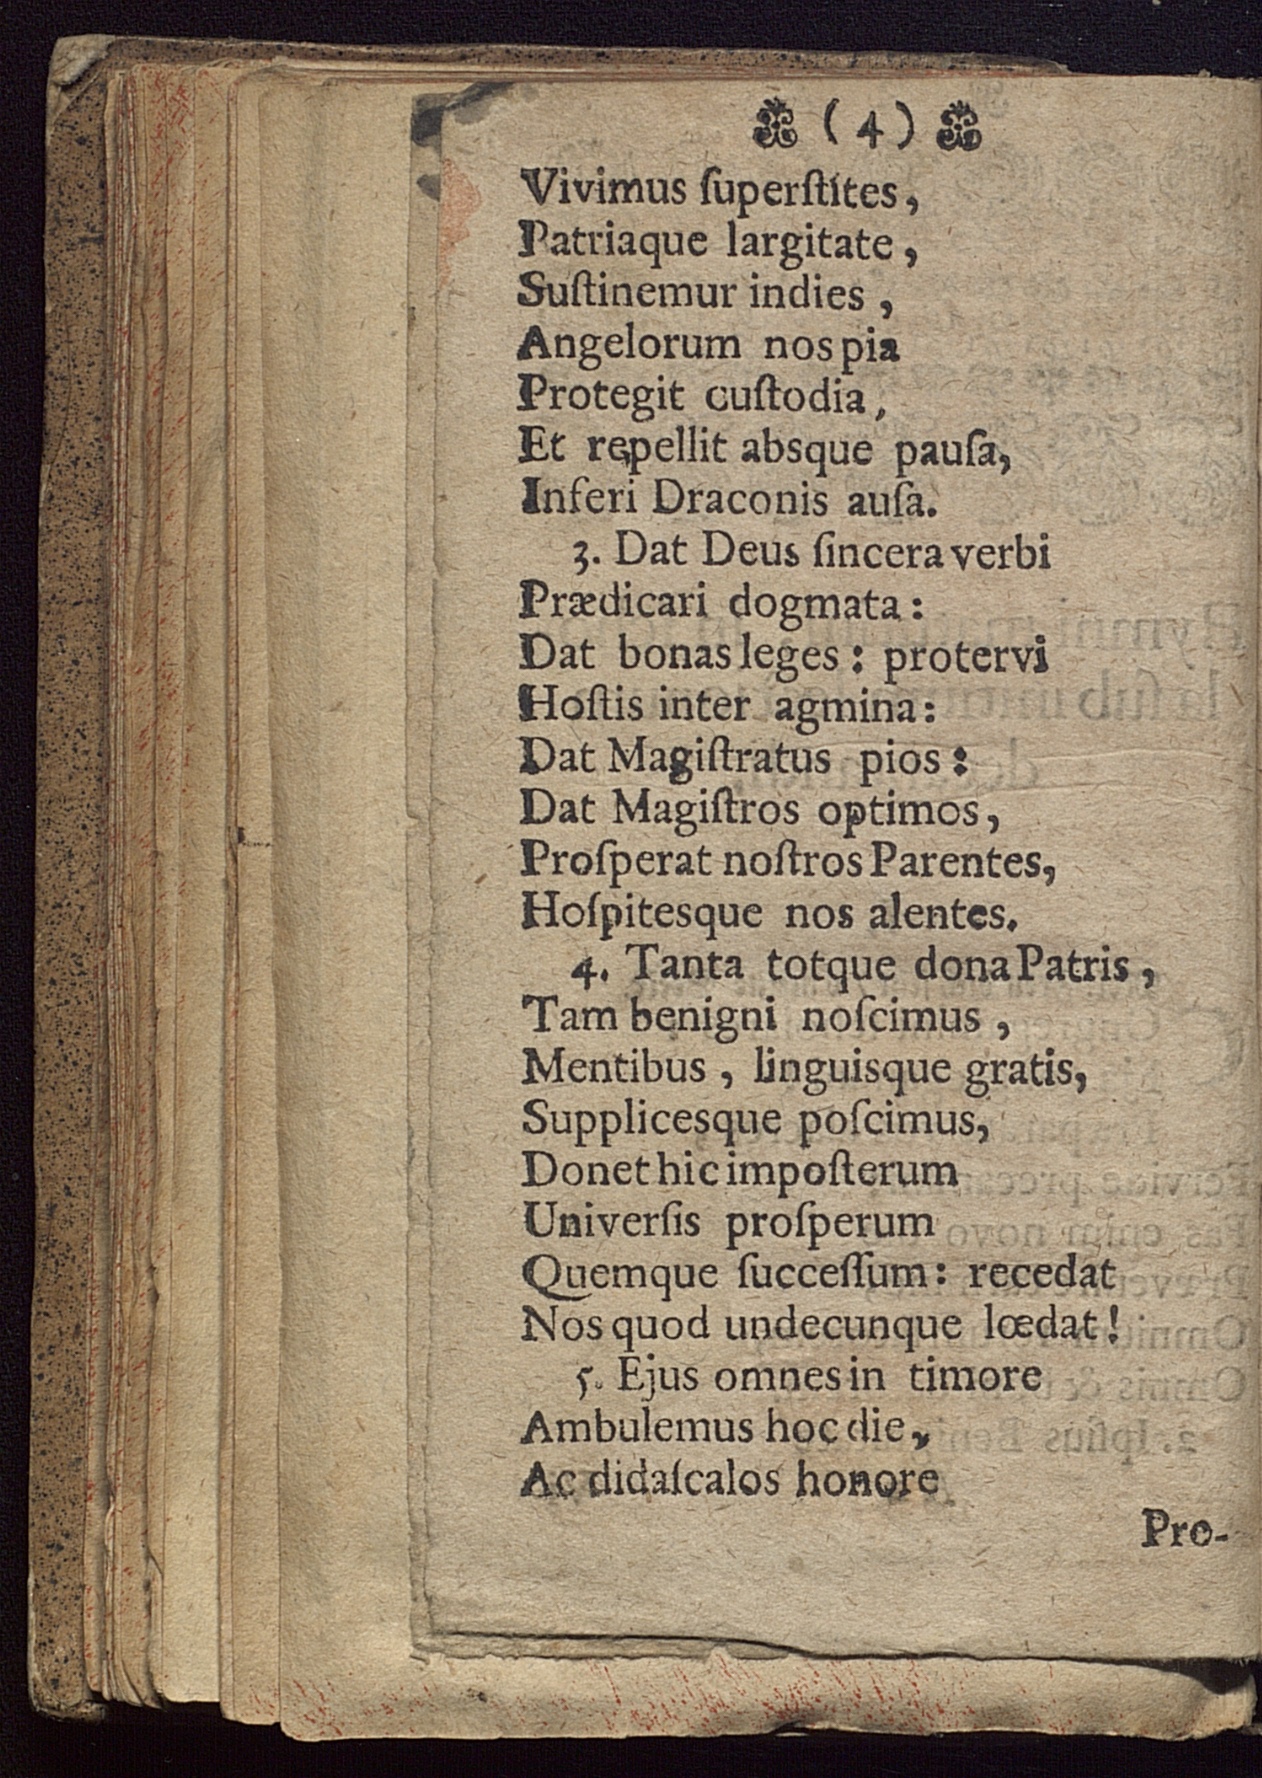 ( 4 )
Vivimus ſuperſtites,
Patriaque largitate,
Suſtinemur indies,
Angelorum nos pia
Protegit cuſtodia,
Et repellit absque pauſa,
Inferi Draconis auſa.
3. Dat Deus ſincera verbi
Prædicari dogmata:
Dat bonas leges: protervi
Hoſtis inter agmina:
Dat Magiſtratus pios:
Dat Magiſtros optimos,
Proſperat noſtros Parentes,
Hoſpitesque nos alentes.
4. Tanta totque dona Patris,
Tam benigni noſcimus,
Mentibus, linguisque gratis,
Supplicesque poſcimus,
Donet hic impoſterum
Univerſis proſperum
Quemque ſucceſſum: recedat
Nos quod undecunque lœdat!
5. Ejus omnes in timore
Ambulemus hoc die,
Ac didaſcalos honore
Pro-